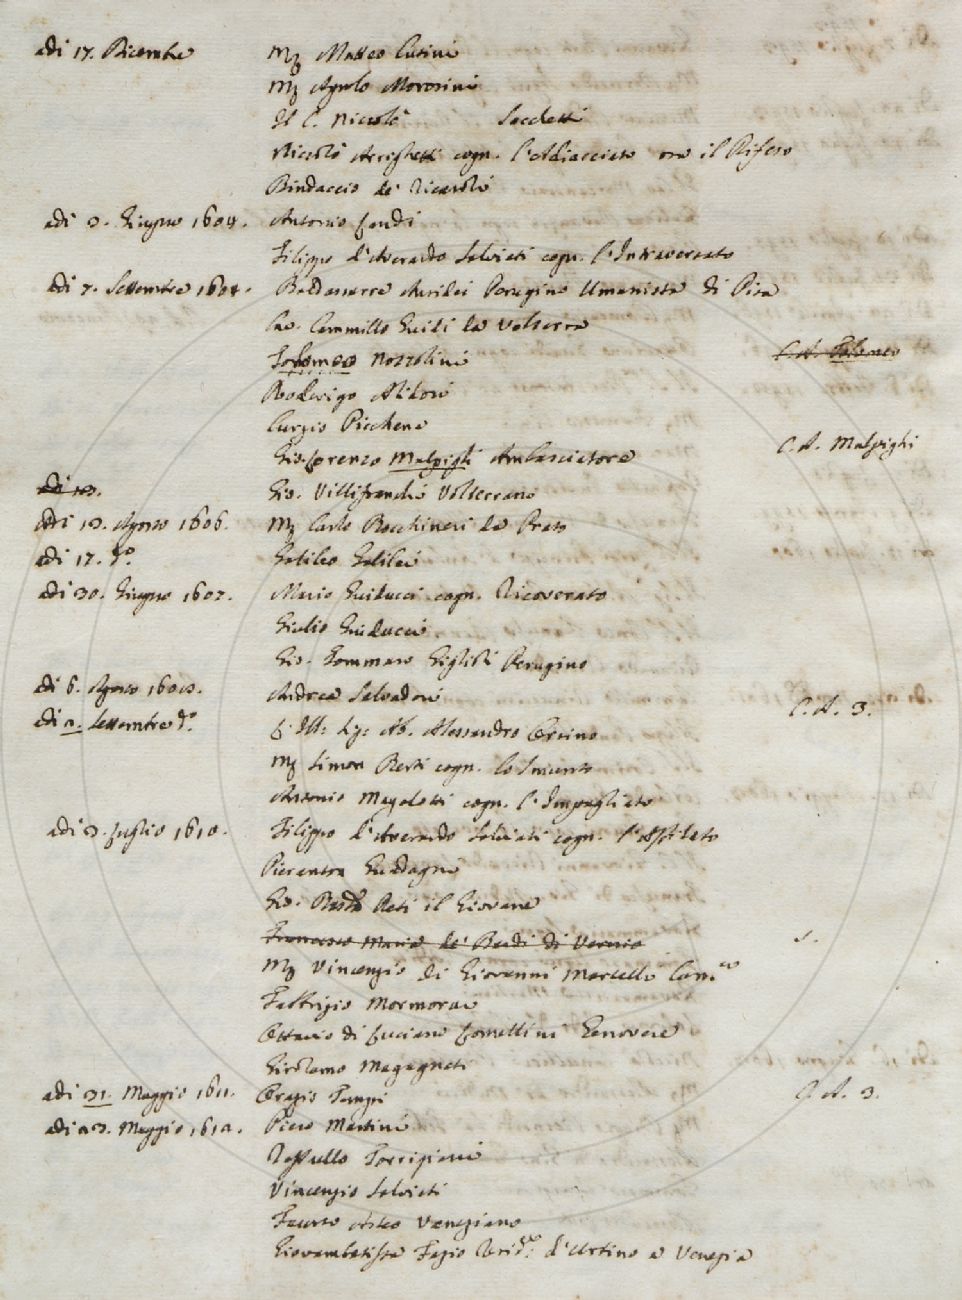 adi 17. Dicembre Mʒ Matteo Cutini
Mʒ Agnolo Morosini
Il C. Niccolò Sacchetti
Niccolò Arrighetti cogn. l'Adiacciato ora il Rifeso
Bindaccio de' Ricasoli
adi 2. Giugno 1604. Antonio Landi
Filippo d'Averardo Salviati cogn. l'Intraversato
adi 7. Settembre 1604. Baldassarre Perugino Umanista di Pisa
Cav. Cammillo Guidi da Volterra
Tolomeo Nozzolini C. A. Tolomeo
Roderigo Alidosi
Curzio Picchena
Gio. Lorenzo Malpigli Ambasciatore C. A. Malpighi
adi 13. Gio. Villifranchi Volterrano
Adi 13. Agosto 1606. Mʒ Carlo Bocchineri da Prato
adi 17. dº Galileo Galilei
adi 30. Giugno 1607. Mario Guiducci cogn. Ricoverato
Giulio Guiducci
Gio. Tommaso Giglioli Perugino
di 6. Agosto Andrea Salvadori
di 2. Settembre dº. Ab. Alessandro Orsino C. A. 3.
Mʒ Simon Berti cogn. lo Smunto
Antonio Magalotti cogn. l'Impagliato
adi 3. Luglio 1610. Filippo d'Averardo Salviati cogn. l'Affilato
Pierantº Guadagni
Gio. il Giovane
Francesco Maria de' Bardi di Vernio s.
Mʒ Vincenzio di Giovanni Marcello
Fabbrizio Mormorai
Ottavio di Luciano Lomellini Genovese
Girolamo Magagnati
adi 31. Maggio 1611. Orazio Tempi C. A. 3.
adi 23. Maggio 1612. Piero Martini
Raffaello Torrigiani
Vincenzio Salviati
Fausto Veneziano
Giovambatista Fazio d'Urbino a Venezia